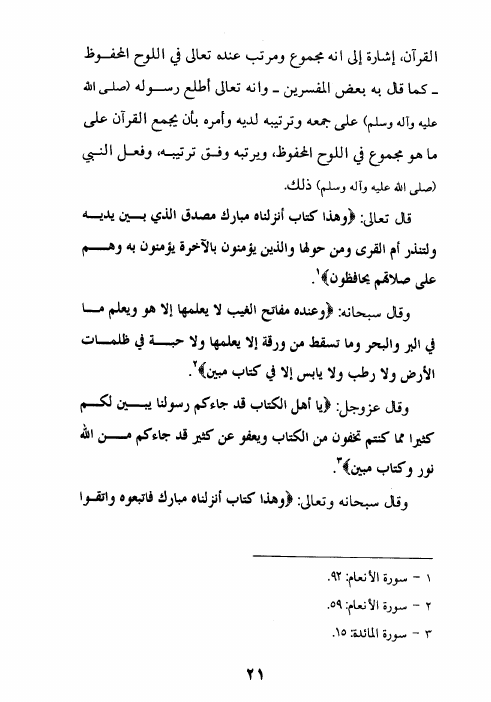 القرآن، إشارة إلى انه مجموع ومرتب عنده تعالى في اللوح المحفـوظ
ـ كما قال به بعض المفسرين ـ وانه تعالى أطلع رسـوله (صلى الله
عليه وآله وسلم) على جمعه وترتيبه لديه وأمره بأن يجمع القرآن على
ما هو مجموع في اللوح المحفوظ، ويرتبه وفـق ترتيبـه، وفعـل النبي
(صلى الله عليه وآله وسلم) ذلك.
قال تعالى: ﴿وهذا كتاب أنزلناه مبارك مصدق الذي بـين يديـه
ولتنذر أم القرى ومن حولها والذين يؤمنون بالآخرة يؤمنون به وهـم
على صلاتهم يحافظون﴾١.
وقال سبحانه: ﴿وعنده مفاتح الغيب لا يعلمها إلا هو ويعلم مـا
في البر والبحر وما تسقط من ورقة إلا يعلمها ولا حبـة في ظلمـات
الأرض ولا رطب ولا يابس إلا في كتاب مبين﴾٢.
وقال عزوجل: ﴿يا أهل الكتاب قد جاءكم رسولنا يبـين لكـم
كثيرا مما كنتم تخفون من الكتاب ويعفو عن كثير قد جاءكم مـن الله
نور وكتاب مبين﴾٣.
وقال سبحانه وتعالى: ﴿وهذا كتاب أنزلناه مبارك فاتبعوه واتقـوا
١ - سورة الأنعام: ٩٢.
٢ - سورة الأنعام: ٥٩.
٣ - سورة المائدة: ١٥.
٢١